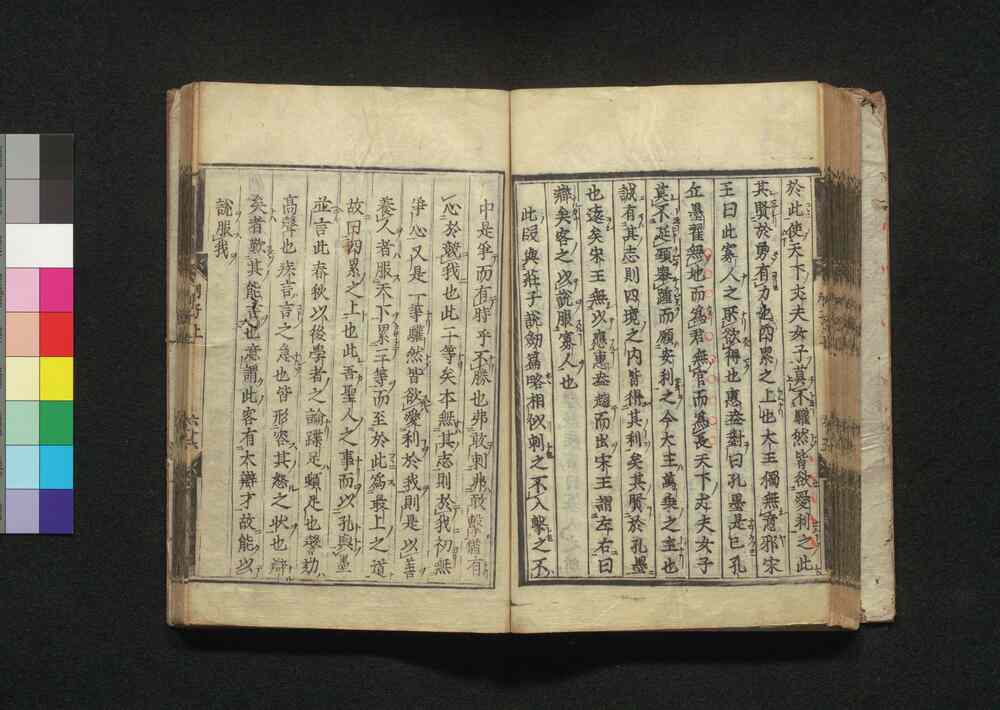 於此使天下丈夫女子莫不驩然皆欲愛利之此
其賢於勇有力也四累之上也大王獨無意邪宋
王曰此寡人之所欲得也惠盎對曰孔墨是已孔
丘墨翟無地而為君無官而為長天下丈夫女子
莫不延頸舉踵而願安利之今大王萬乘之主也
誠有其志則四境之内皆得其利矣其賢於孔墨
也遠矣宋王無以應惠盎趨而出宋王謂左右曰
辯矣客之以說服寡人也
此段與莊子說劍篇略相似刺之不入擊之不
中是乎而有時乎不勝也弗敢刺弗敢擊猶有
心於競我也此二等矣本無其志則於我初無
爭心又是一等驩然皆欲愛利於我則是以善
養人者服天下累三等而至於此為最上之道
故曰四累之上也此吾聖人之事而以孔與墨
並言此春秋以後學者之論蹀足頓足也謦欬
高聲也疾言言之急也皆形容其怒之状也辯
矣者歎其能言也意謂此客有太辯才故能以
說服我